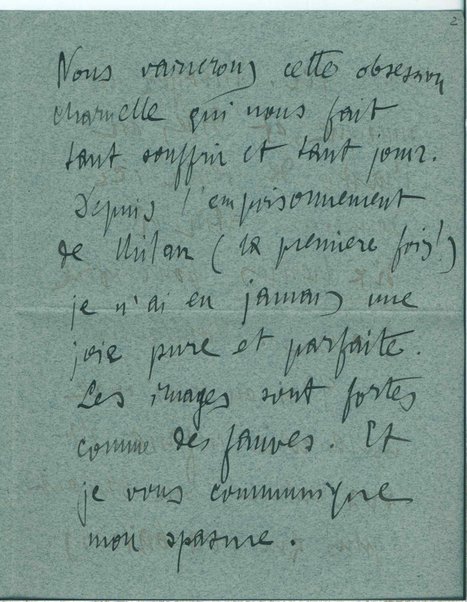 2
Nous vaincrons cette obsession
charnelle qui nous fait
tant souffrir et tant jouir.
Depuis l'empoisonnement
de Milan (la première fois!)
je n'ai eu jamais une
joie pure et parfaite.
Les images sont fortes
comme des fauves. Et
je vous communique
mon spasme.